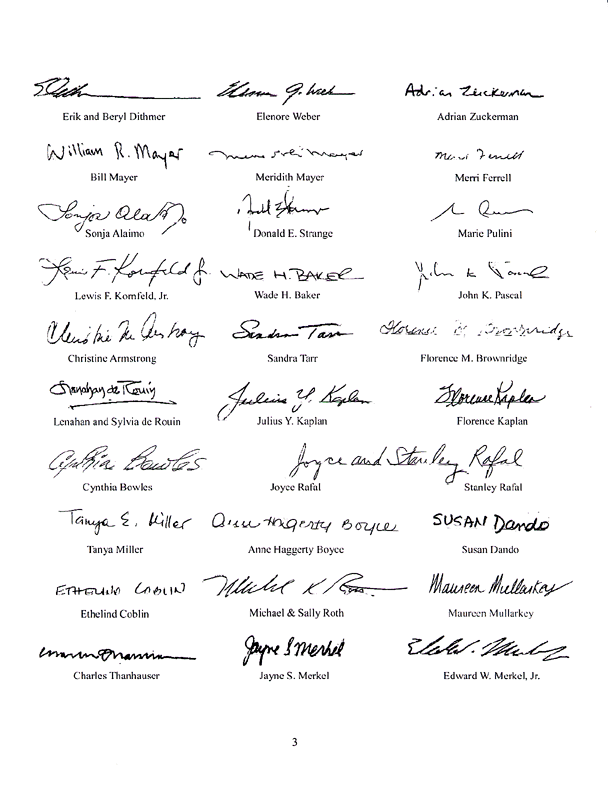 Elenore G. Weber Adrian Zuckerman
Erik and Beryl Dithmer Elenore Weber Adrian Zuckerman
William R. Mayer
Bill Mayer Meridith Mayer Merri Ferrell
Sonja Alaimo
Sonja Alaimo Donald E. Strange Marie Pulini
Lewis F. Kornfeld Jr. WADE H. BAKER John K Pascal
Lewis F. Kornfeld, Jr. Wade H. Baker John K. Pascal
Christine M. Armstrong Sandra Tarr Florence M. Brownridge
Christine Armstrong Sandra Tarr Florence M. Brownridge
Lenahan de Rouin Julius Y. Kaplan Florence Kaplan
Lenahan and Sylvia de Rouin Julius Y. Kaplan Florence Kaplan
Cynthia Bowles Joyce and Stanley Rafal
Cynthia Bowles Joyce Rafal Stanley Rafal
Tanya E. Miller Anne Haggerty Boyce SUSAN Dando
Tanya Miller Anne Haggerty Boyce Susan Dando
ETHELIND COBLIN Michael K Roth Maureen Mullarkey
Ethelind Coblin Michael & Sally Roth Maureen Mullarkey
Jayne S Merkel
Charles Thanhauser Jayne S. Merkel Edward W. Merkel, Jr.
3